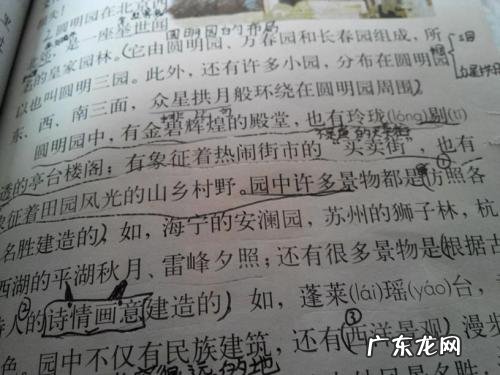 圆明园在北京西
北郊,是一座举世闻
圆明园的布局
名的皇家园林。它由圆明园、万春园和长春园组成,所
以也叫圆明三园。此外,还有许多小园,分布在圆明园
东、西、南三面,众星拱月般环绕在圆明园周围。
圆明园中,有金碧辉煌的殿堂,也有玲珑(lóng)剔(tī)
透的亭台楼阁;有象征着热闹街市的“买卖街”,也有
象征着田园风光的山乡村野。园中许多景物都是仿照各
名胜建造的,如,海宁的安澜园,苏州的狮子林,杭
西湖的平湖秋月、雷峰夕照;还有很多景物是根据古
诗人的诗情画意建造的,如,蓬莱(lái)瑶(yáo)台,
色。园中不仅有民族建筑,还有西洋景观。漫步
广东龙网